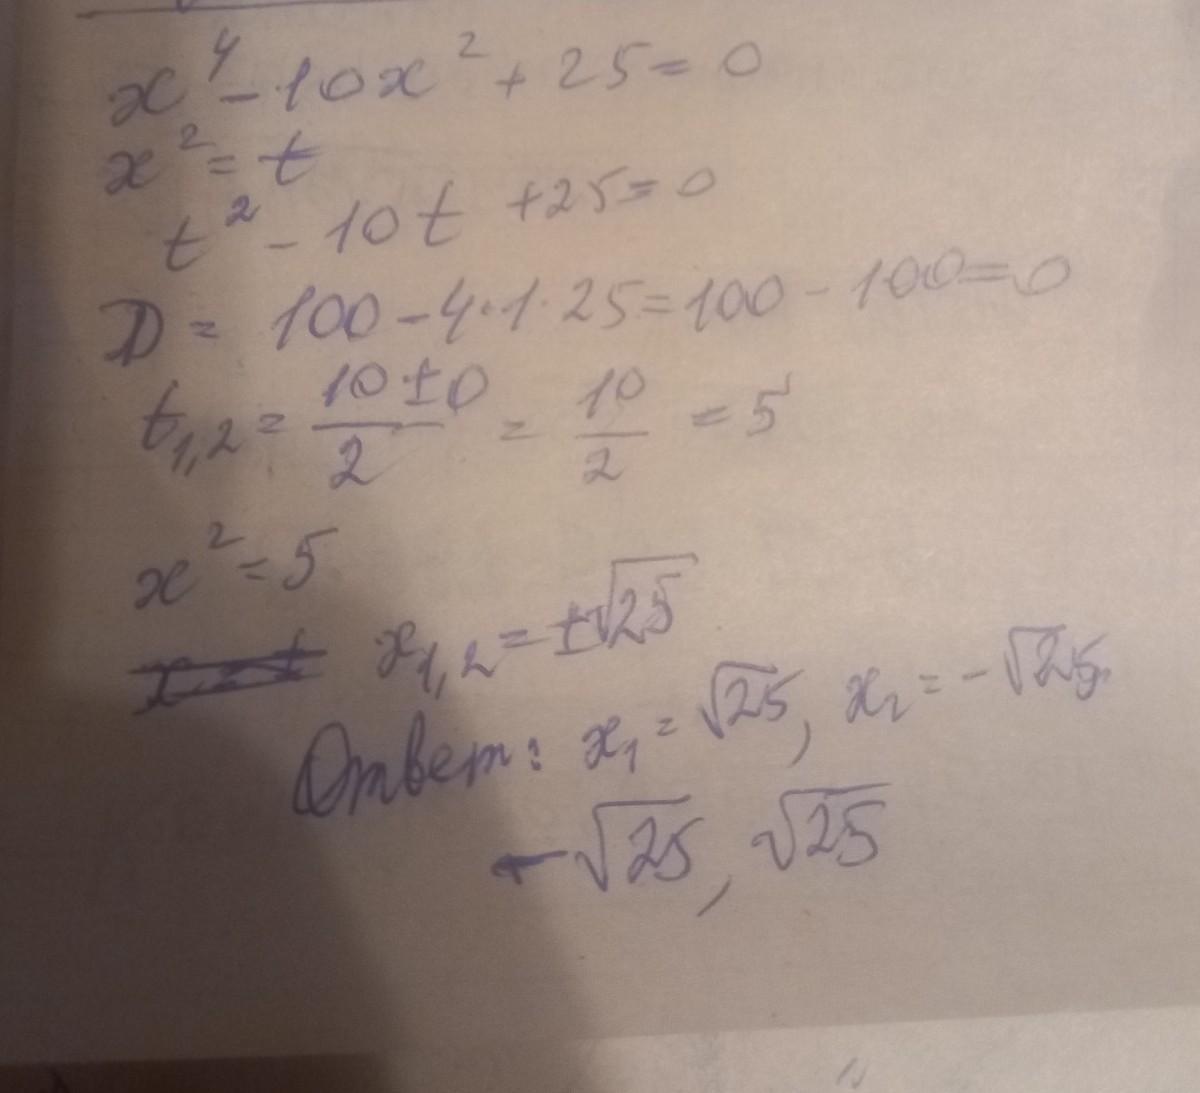 x⁴ - 10x² + 25 = 0
x² = t
t² - 10t + 25 = 0
D = 100 - 4·1·25 = 100 - 100 = 0
t₁,₂ = (10 ± 0)/2 = 10/2 = 5
x² = 5
x₁,₂ = ±√25
Ответ: x₁ = √25, x₂ = -√25.
-√25, √25